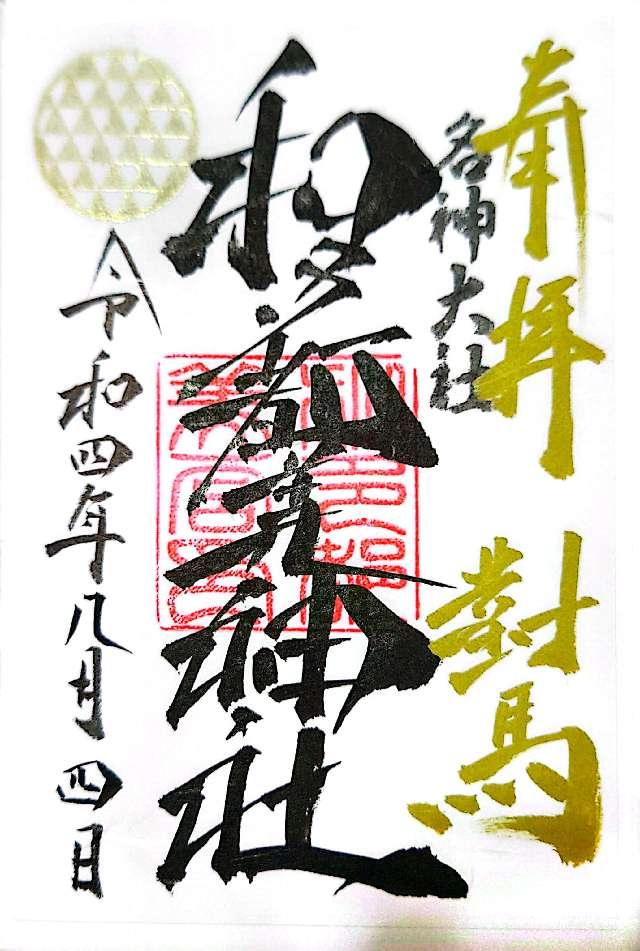 奉拝 對馬
名神大社
和多都美神社
令和四年八月四日